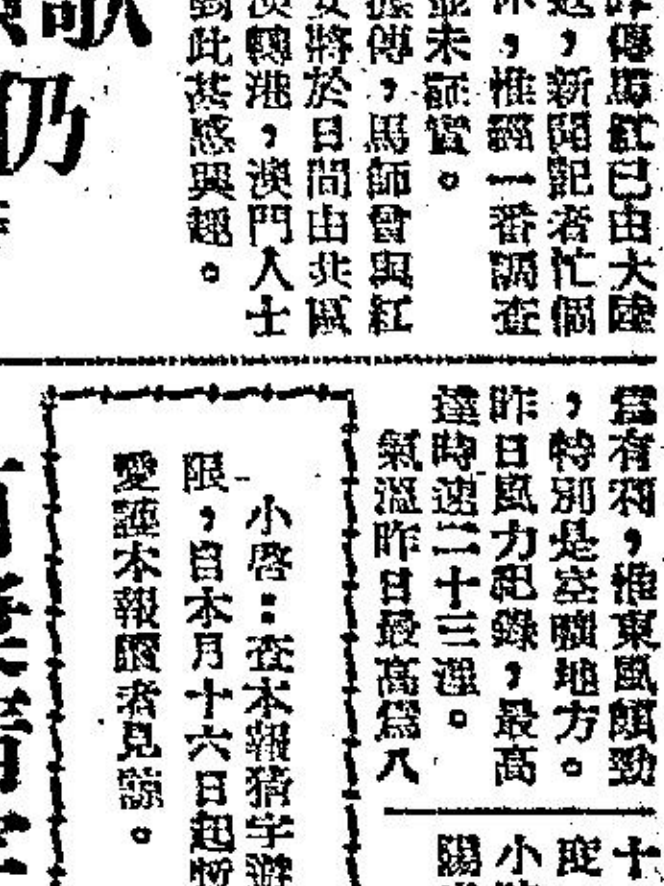 昨傳馬紅已由大陸
返,新聞記者忙個
,惟經一番調查
並未証實。
據傳,馬師曾與紅
女將於日間由共區
澳轉港,澳門人士
對此甚感興趣。
歌
仍
為有利,惟東風頗勁
,特別是空曠地方。
昨日風力紀錄,最高
達時速二十三浬。
氣溫昨日最高為八
十
度
小
陽
小啓:查本報猜字遊
限,自本月十六日起暫
愛護本報讀者見諒。